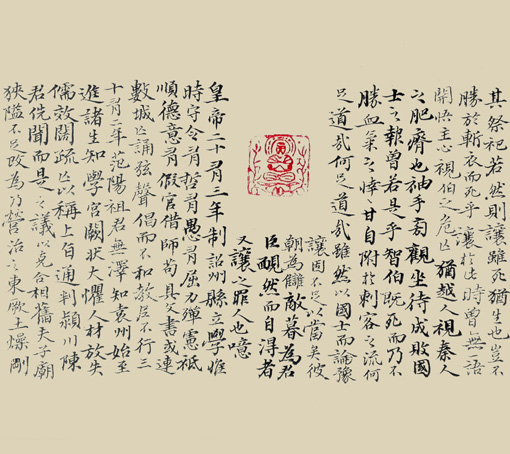 其祭祀若然則讓雖死猶生也豈不
勝於斬衣而死乎讓於此時曾無一語
開悟主心視伯之危亡猶越人視秦人
之肥瘠也袖手旁觀坐待成敗國
士之報曾若是乎智伯既死而乃不
勝血氣之悻悻甘自附於刺客之流何
足道哉何足道哉雖然以國士而論豫
讓固不足以當矣彼
朝為讎敵暮為君
臣靦然而自得者
又讓之罪人也噫
皇帝二十有三年制詔州縣立學惟
時守令有哲有愚有屈力殫慮祗
順德意有假官借師苟具文書或連
數城亡誦弦聲倡而不和教尼不行三
十有二年范陽祖君無澤知袁州始至
進諸生知學宮闕狀大懼人材放失
儒效闊疏亡以稱上旨通判潁川陳
君侁聞而是之議以克合相舊夫子廟
狹隘不足改為乃營治之東厥土燥剛